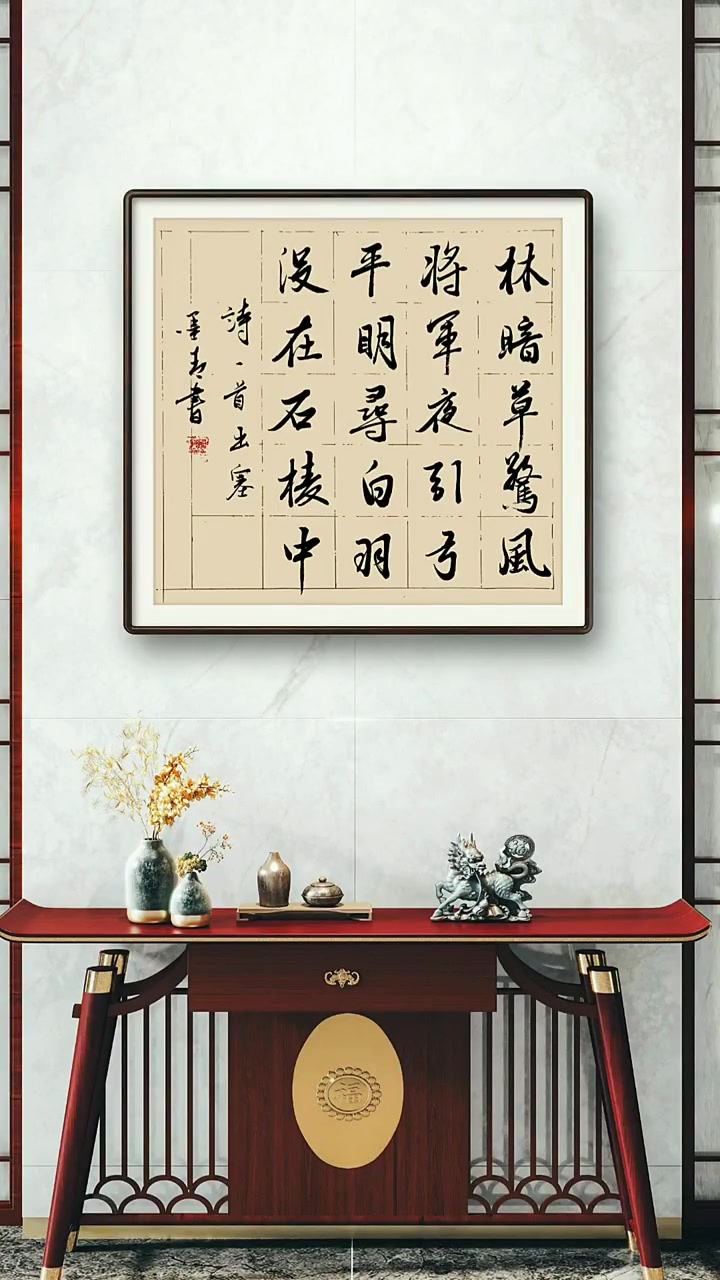 林暗草驚風
將軍夜引弓
平明尋白羽
没在石棱中
詩一首出塞
墨青書
福